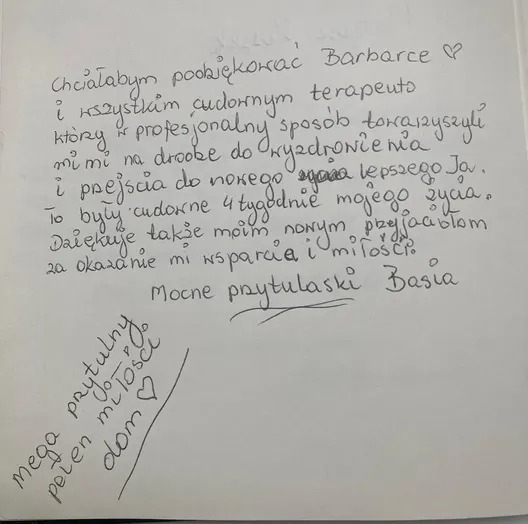 Chciałabym podziękować Barbarce ♡
i wszystkim cudownym terapeuto
którzy w profesjonalny sposób towarzyszyli
mi mi na drodze do wyzdrowienia
i przejścia do nowego lepszego Ja.
To były cudowne 4 tygodnie mojego życia.
Dziękuję także moim nowym przyjaciołom
za okazanie mi wsparcie i miłości.
Mocne przytulaski Basia
Mega przytulny
pełen miłości
dom ♡